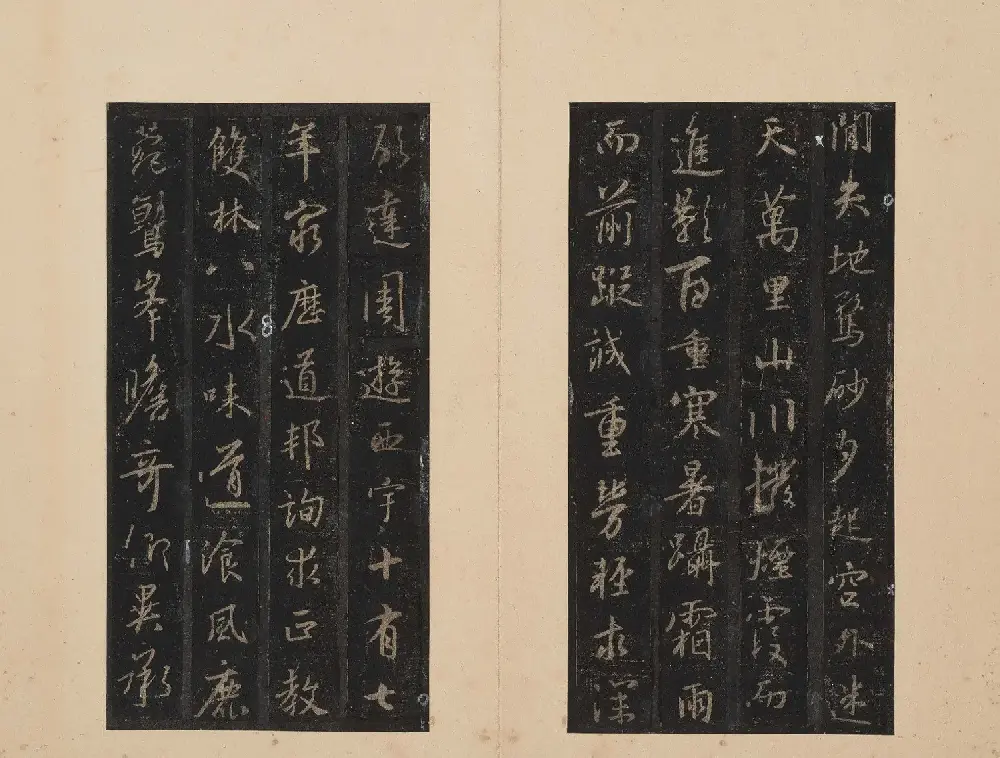 間失地驚砂夕起空外迷
天萬里山川撥煙霞而
進影百重寒暑躡霜雨
而前蹤誠重勞輕求深
願達周遊西宇十有七
年窮歷道邦詢求正教
雙林八水味道飡風鹿
菀鷲峯瞻奇仰異承